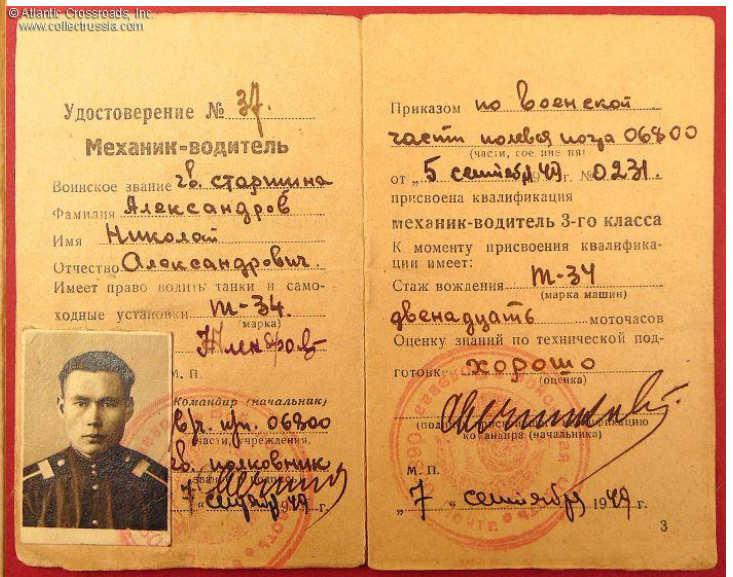 © Atlantic Crossroads, Inc.
www.collectrussia.com
Удостоверение № 37.
Механик-водитель
Воинское звание гв. старшина
Фамилия Александров
Имя Николай
Отчество Александрович.
Имеет право водить танки и само-
ходные установки т-34.
(марка)
М. П.
Командир (начальник)
в/ч. п/п. 06800
части, учреждения,
гв. полковник
7 сентября 1949 г.
Приказом по военской
части полевая почта 06800
(части, соединения)
от „5 сентября 1949 г. № 0231.
присвоена квалификация
механик-водитель 3-го класса
К моменту присвоения квалифика-
ции имеет:
Стаж вождения т-34
(марка машин)
двенадцать моточасов
Оценку знаний по технической под-
готовке хорошо
(оценка)
командира (начальника)
М. П.
„7“ сентября 1949 г.
3